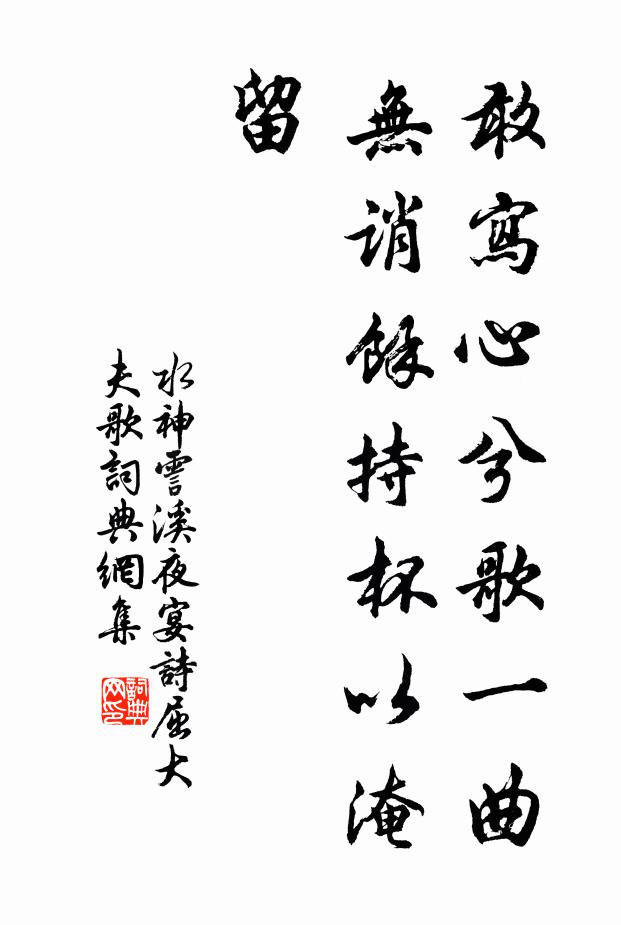 敢寫心兮歌一曲
無誚餘持杯以淹
留
水神雩溪夜宴詩屈大
夫歌詞典網集
詞典
网印